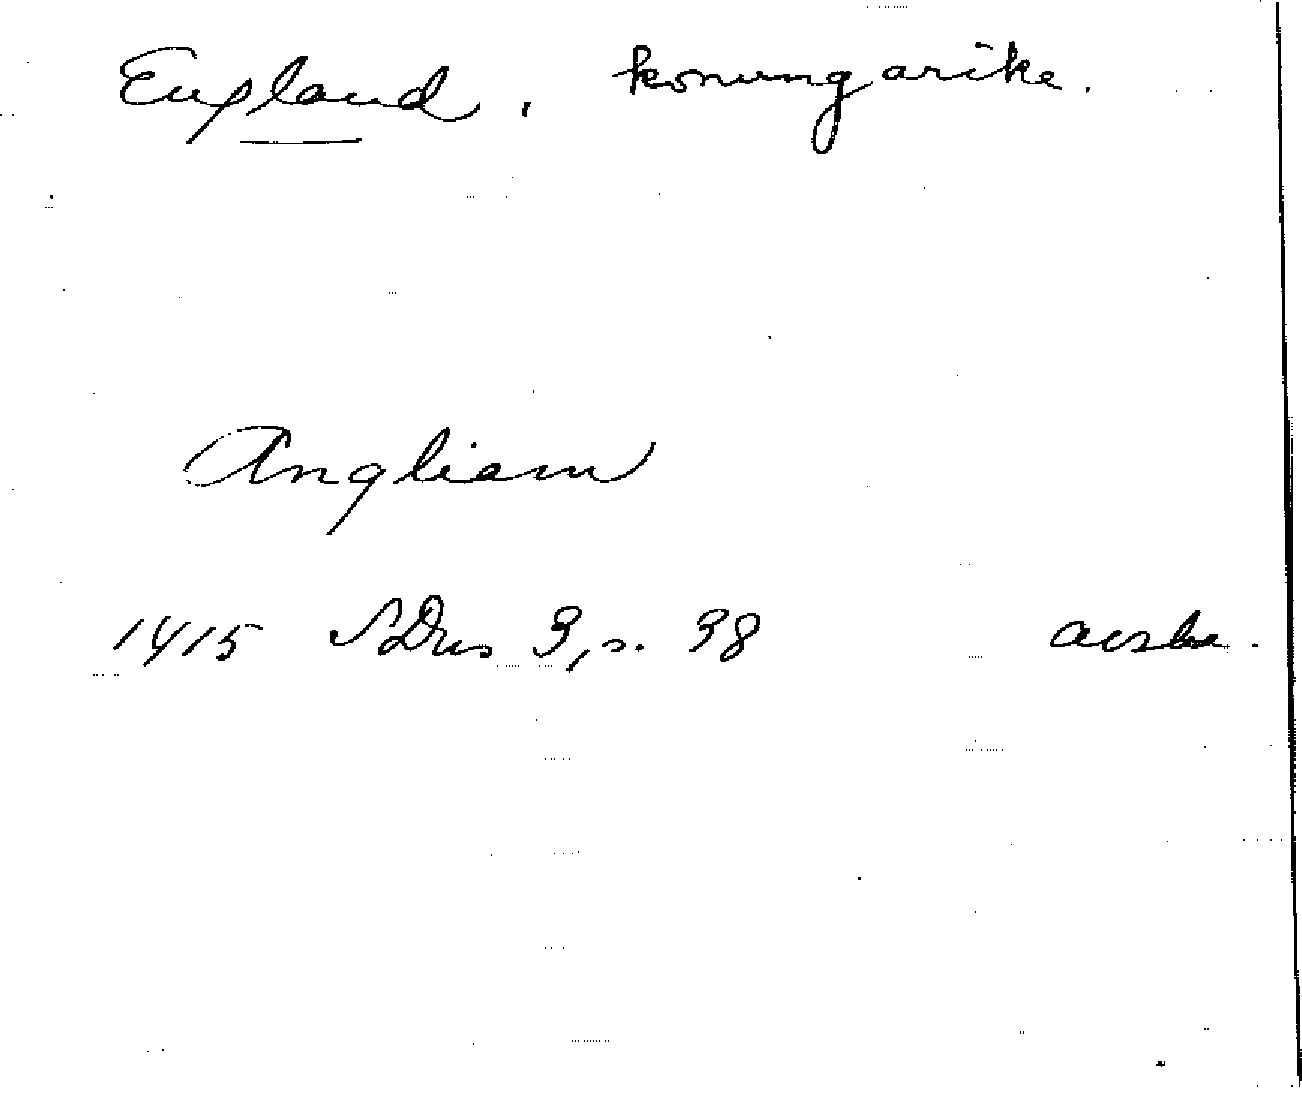 England, konungarike.
Angliam
1415 SDns 3, s. 38